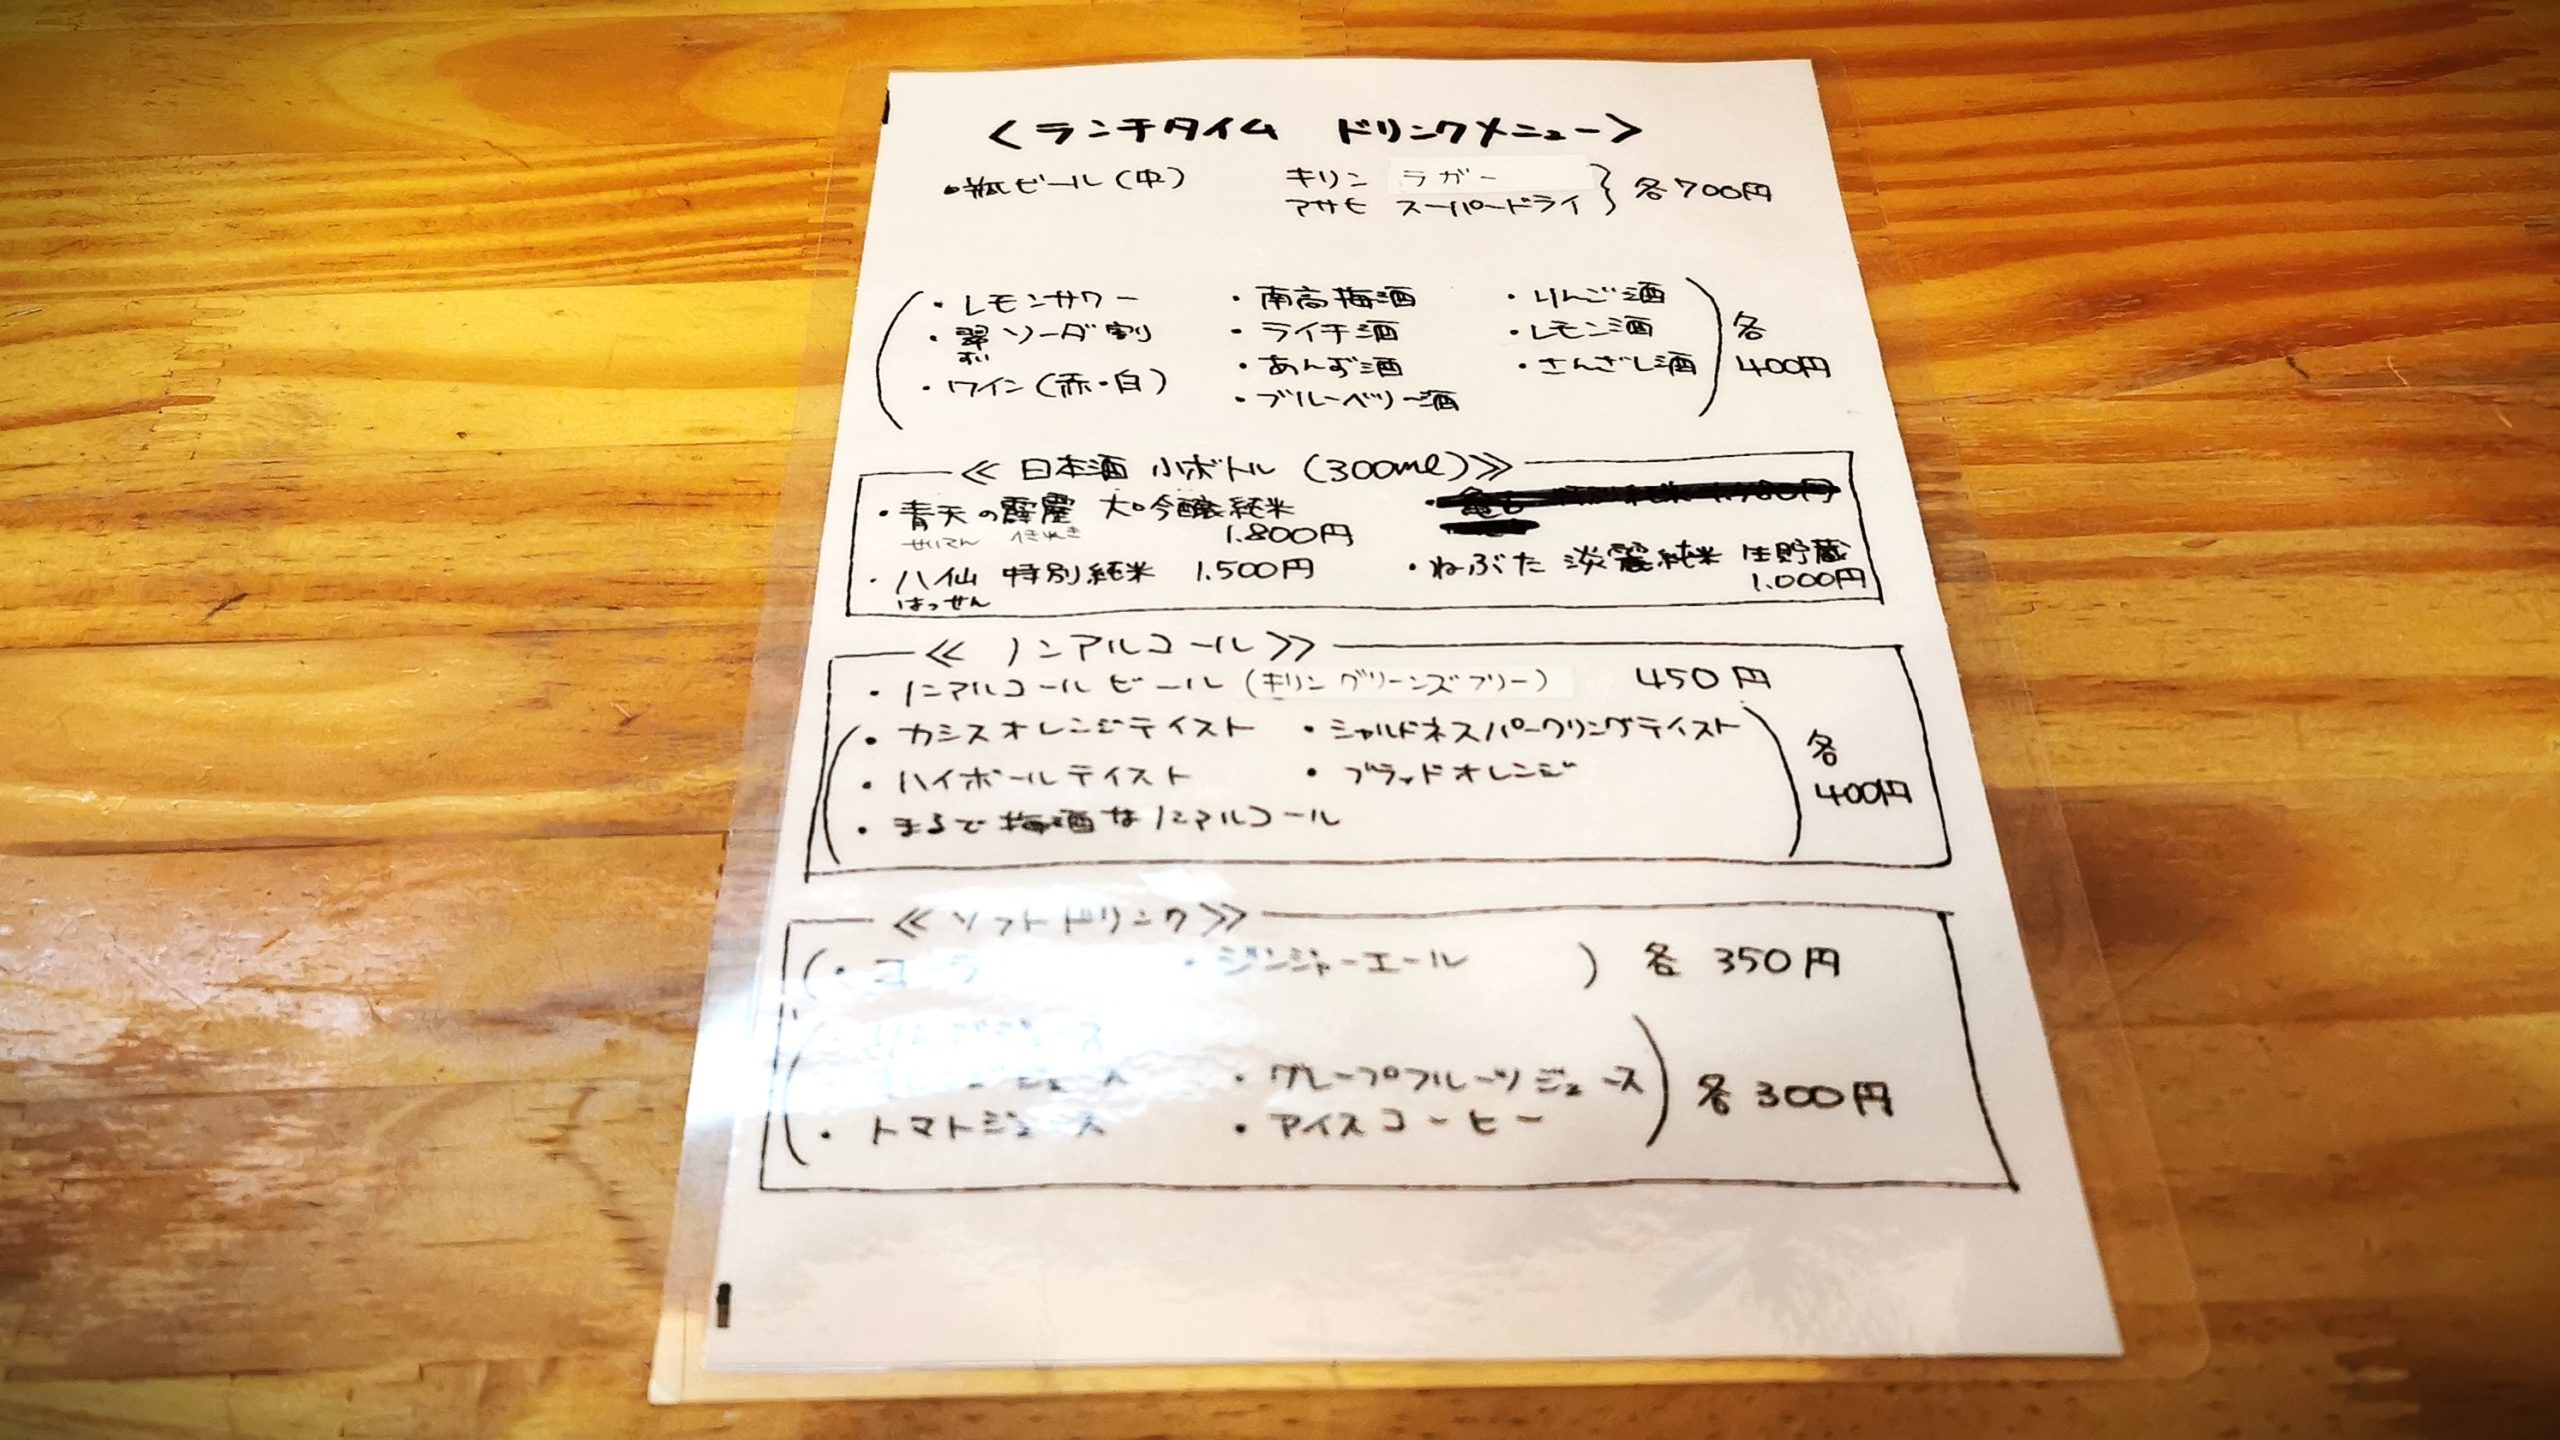 <ランチタイム ドリンクメニュー>
・瓶ビール(中) キリン ラガー
アサヒ スーパードライ } 各700円
・レモンサワー ・南高梅酒 ・りんご酒
・翠ソーダ割 ・ライチ酒 ・レモン酒 各
すい ・あんず酒 ・さんざし酒 400円
・ワイン(赤・白) ・ブルーベリー酒
≪日本酒 小ボトル (300ml)≫
・青天の霹靂 大吟醸純米
せいてん へきれき 1.800円
・八仙 特別純米 1.500円 ・ねぶた 淡麗純米 生貯蔵
はっせん 1.000円
≪ノンアルコール≫
・ノンアルコールビール(キリングリーンズフリー) 450円
・カシスオレンジテイスト ・シャルドネスパークリングテイスト 各
・ハイボールテイスト ・ブラッドオレンジ 400円
・まるで梅酒なノンアルコール
≪ソフトドリンク≫
(・コーラ ・ジンジャーエール ) 各 350円
りんごジュース
ジュース ・グレープフルーツジュース 各300円
・トマトジュース ・アイスコーヒー